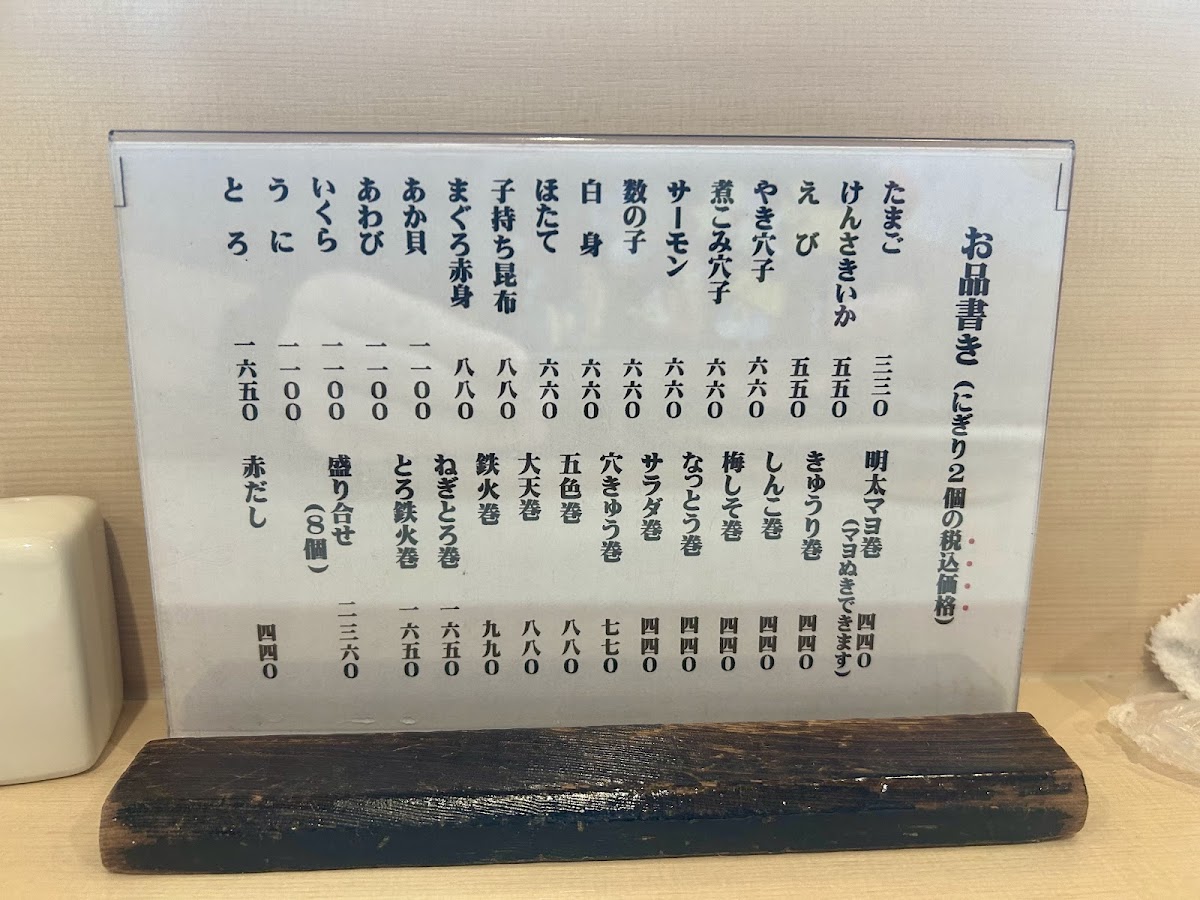 お品書き(にぎり2個の税込価格)
たまご 三三〇
けんさきいか 五五〇
えび 五五〇
やき穴子 六六〇
煮こみ穴子 六六〇
サーモン 六六〇
数の子 六六〇
白身 六六〇
ほたて 六六〇
子持ち昆布 八八〇
まぐろ赤身 八八〇
あか貝 一一〇〇
あわび 一一〇〇
いくら 一一〇〇
うに 一一〇〇
とろ 一六五〇
明太マヨ巻 四四〇
(マヨぬきできます)
きゅうり巻 四四〇
しんこ巻 四四〇
梅しそ巻 四四〇
なっとう巻 四四〇
サラダ巻 四四〇
穴きゅう巻 七七〇
五色巻 八八〇
大天巻 八八〇
鉄火巻 九九〇
ねぎとろ巻 一六五〇
とろ鉄火巻 一六五〇
盛り合せ 二三六〇
(8個)
赤だし 四四〇